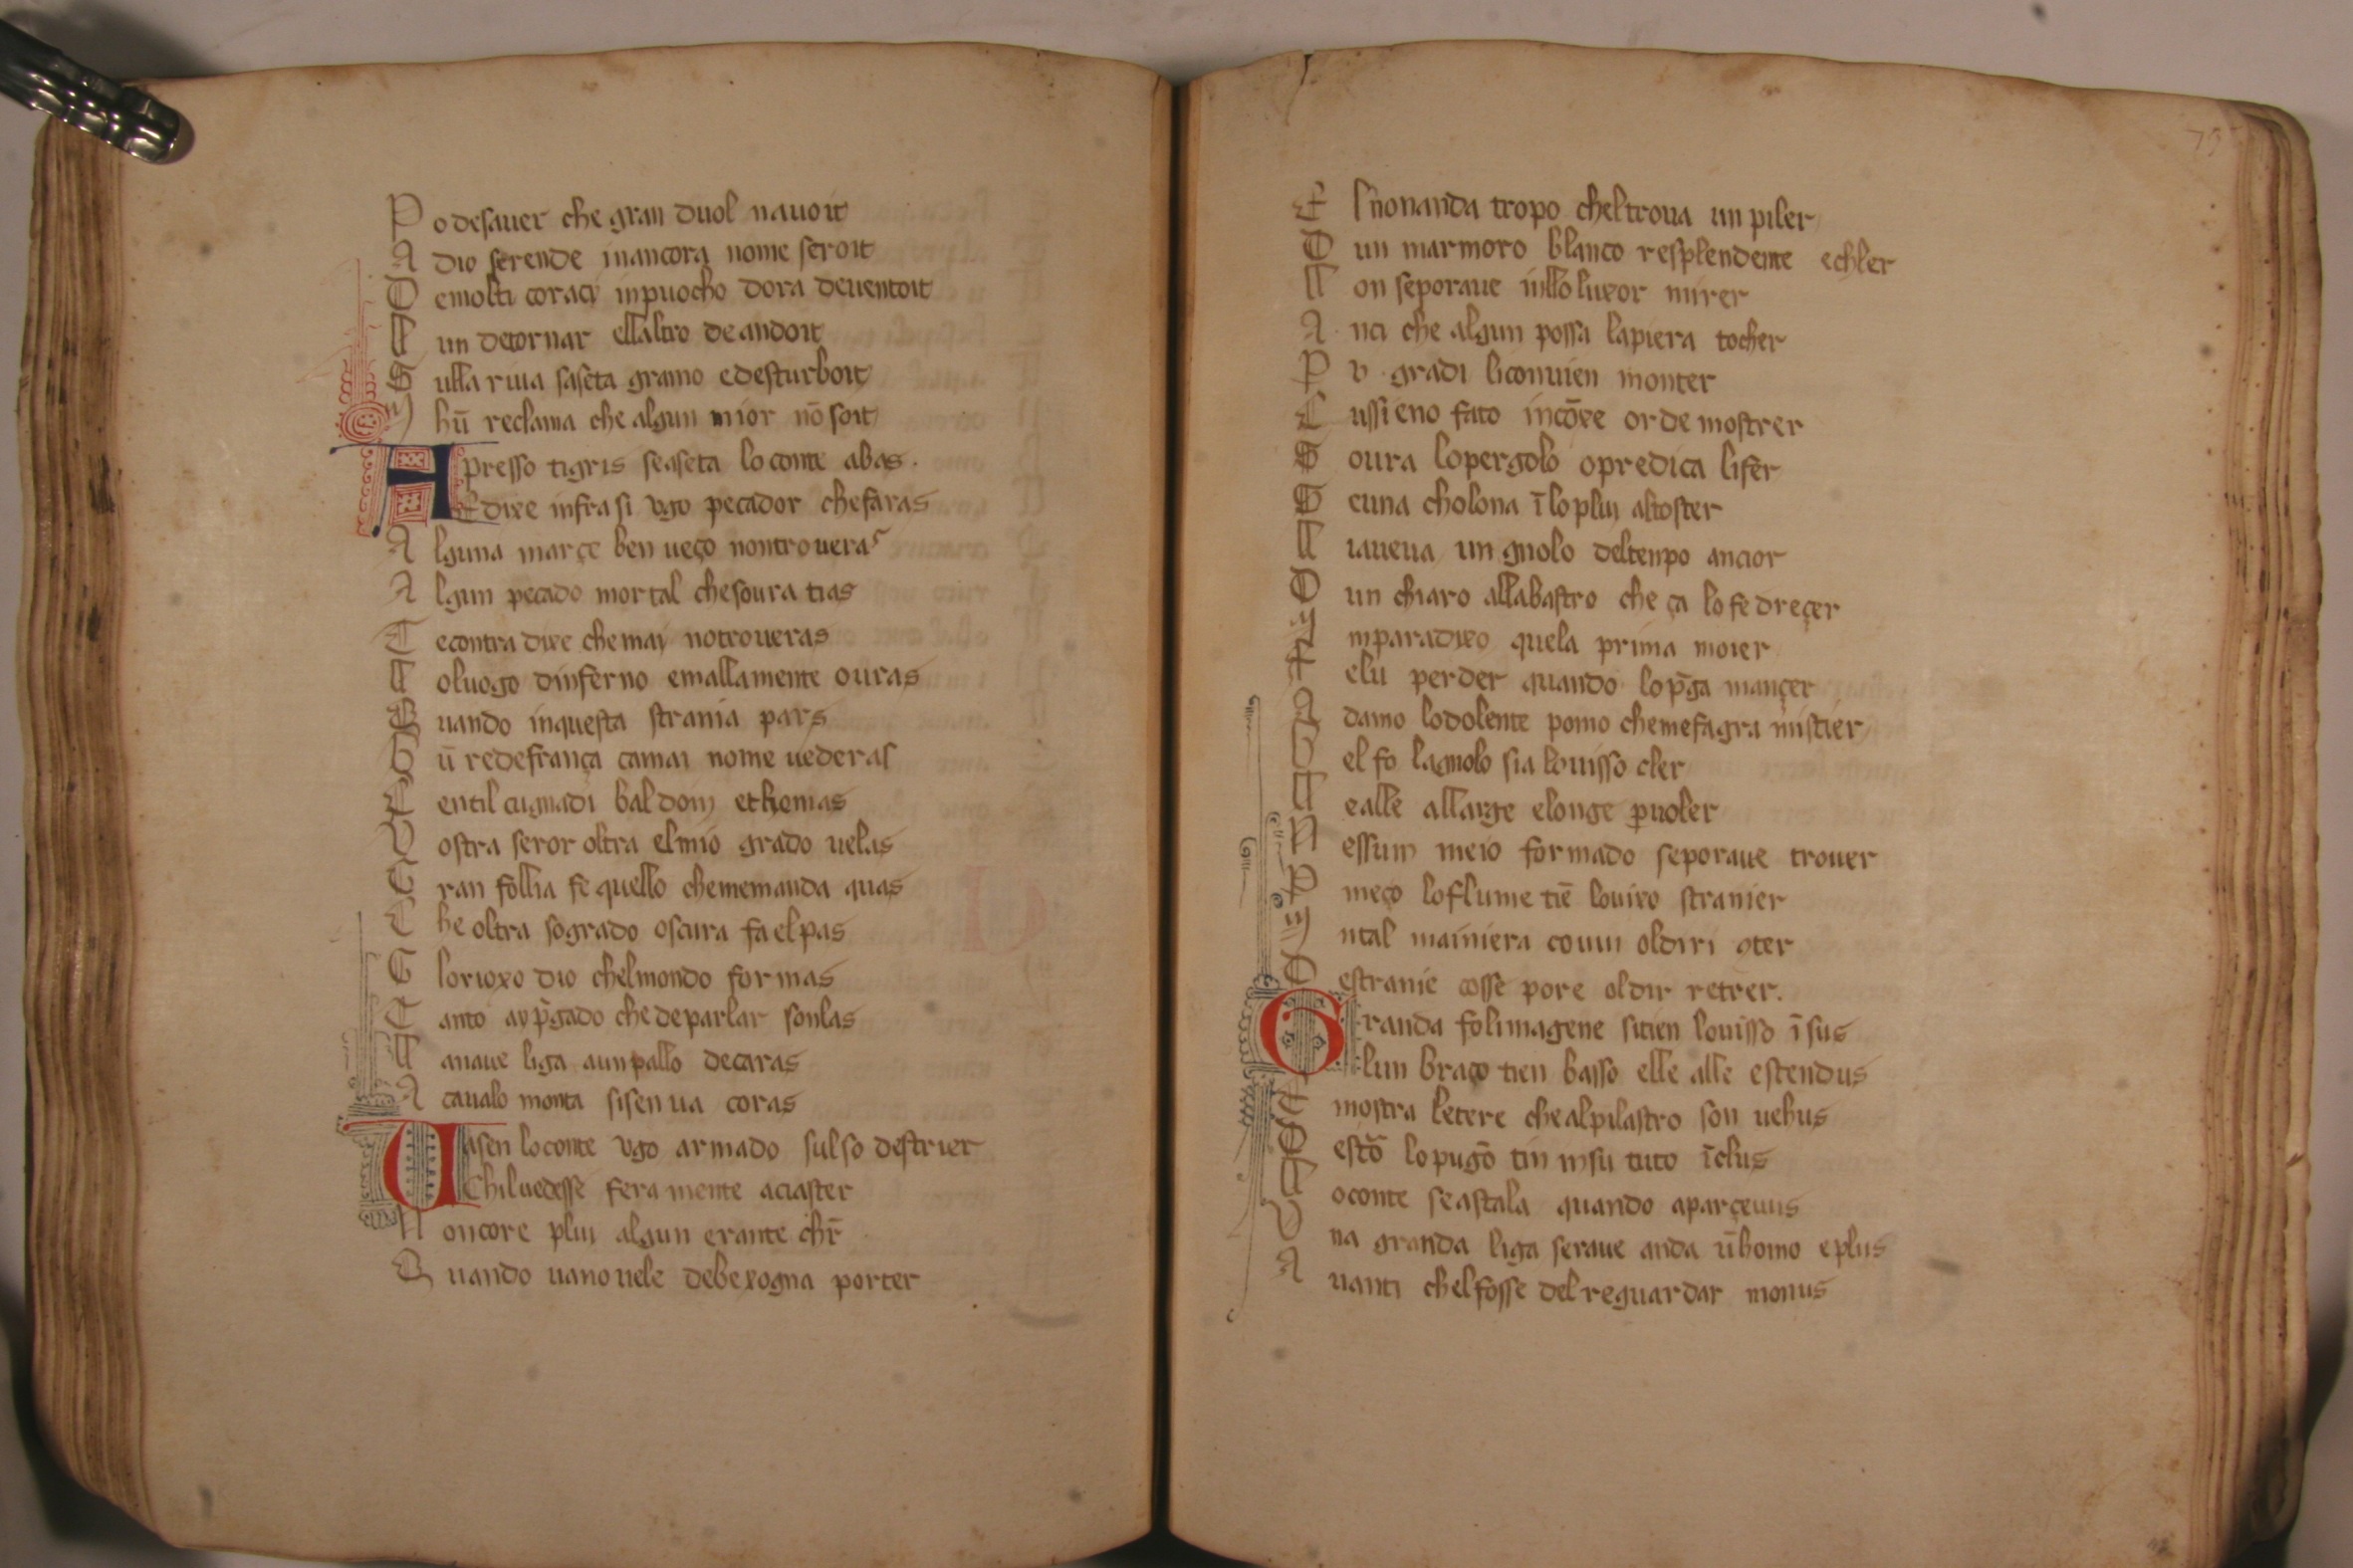 P o desaver che gran duol navoit
A dio serende inancora nome seroit
D emolti coraci inpuocho dora deventoit
L un detornar ellaltro de andoit
S ulla riva saseta gramo edesturboit
Y hū reclama che algun mior nō soit
A presso tigris seaseta lo conte abas.
E dixe infra si vgo pecador chefaras
A lguna marçe ben veço nontroveras
A lgun pecado mortal chesoura tias
T econtra dixe che mai notroveras
L oluogo dinferno emallamente ouras
Q uando inquesta strania pars
B ū redefrança çamai nome vederas
C entil cugnadi baldoin ethomas
V ostra seror oltra elmio grado velas
G ran follia fe quello chememanda quas
C he oltra sogrado oscura fa elpas
G lorioxo dio chelmondo formas
T anto ay p̄gado che deparlar sonlas
L anave liga aunpallo decaras
A cavalo monta sisen va coras
V asen loconte vgo armado sulso destrier
Chilvedesse fera mente aciaster
N oncore plui algun erante chr̄
Q uando vano vele debexogna porter
75
E l n̄onanda tropo cheltrova un piler
D un marmoro blanco resplendente echler
N on seporave inllo luxor mirer
A nci che algun possa lapiera tocher
P v gradi liconvien monter
C ussi eno fato incōxe or de mostrer
S oura lopergolo opredica lifer
S euna cholona ī lo plui altoster
L iaveva un gnolo deltenpo ancior
D un chiaro allabastro che ça lo fe dreçer
Y mparadixo quela prima moier
F elu perder quando lop̄ga mançer
A damo lodolente pomo chemefagra mistier
B el fo lagnolo sia lovisso cler
L ealle allarge elonge p̱voler
N essun meio formado seporave trover
P meço loflume tiē lovixo stranier
Y ntal mainiera couvi oldiri ꝯter
D estranie cosse pore oldir retrer.
G randa folimagene sitien lovisso ī sus
Llun braço tien basso elle alle estendus
E mostra letere chealpilastro son vehus
D estō lopugō tin insu tuto īclus
L oconte seastala quando aparçevus
V na granda liga serave anda ūhomo eplus
A vanti chelfosse delreguardar monus